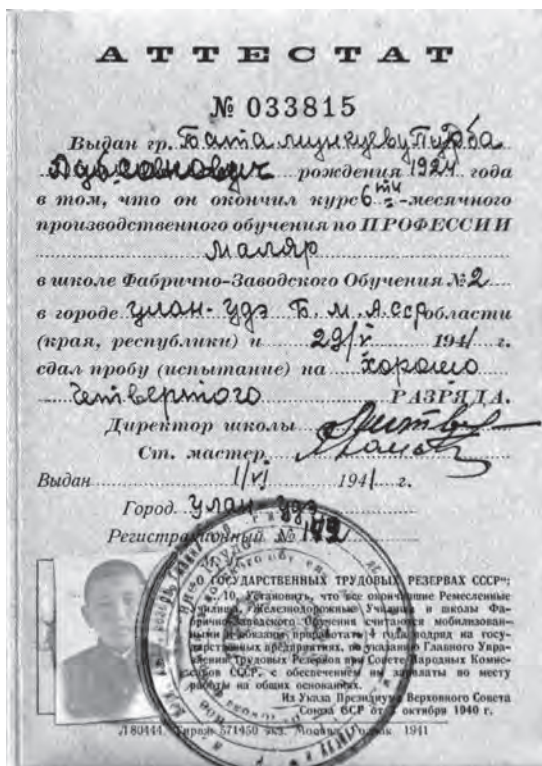 АТТЕСТАТ
№ 033815
Выдан гр. Баталмункуеву Пурба
рождения 1924 года
в том, что он окончил курс 6ти-месячного
производственного обучения по ПРОФЕССИИ
маляр
в школе Фабрично-Заводского Обучения № 2
в городе Улан-Удэ Б. М. А. ССР области
(края, республики) и 29/V 1941 г.
сдал пробу (испытание) на хорошо
четвертого РАЗРЯДА.
Директор школы
Ст. мастер
Выдан 1/VI 1941 г.
Город Улан Удэ
Регистрационный №
„О ГОСУДАРСТВЕННЫХ ТРУДОВЫХ РЕЗЕРВАХ СССР“:
10. Установить, что все окончившие Ремесленные
Училища, Железнодорожные Училища и школы Фа-
брично-Заводского Обучения считаются мобилизован-
ными и обязаны проработать 4 года подряд на госу-
дарственных предприятиях, по указанию Главного Упра-
вления Трудовых Резервов при Совете Народных Комис-
саров СССР, с обеспечением им зарплаты по месту
работы на общих основаниях.
Из Указа Президиума Верховного Совета
Союза ССР от октября 1940 г.
Л80444. Тираж 571450 экз. Москва, Гознак 1941